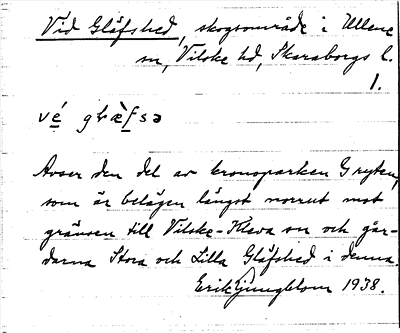 Vid Gläfshed, skogsområde i Ullene
sn, Vilske hd, Skaraborgs l.
1.
vé́ gɫæ̀fsə
Avser den del av kronoparken Gryten,
som är belägen längst norrut mot
gränsen till Vilske-Kleva sn och går-
darna Stora och Lilla Gläfshed i denna.
Erik Ljungblom 1938.